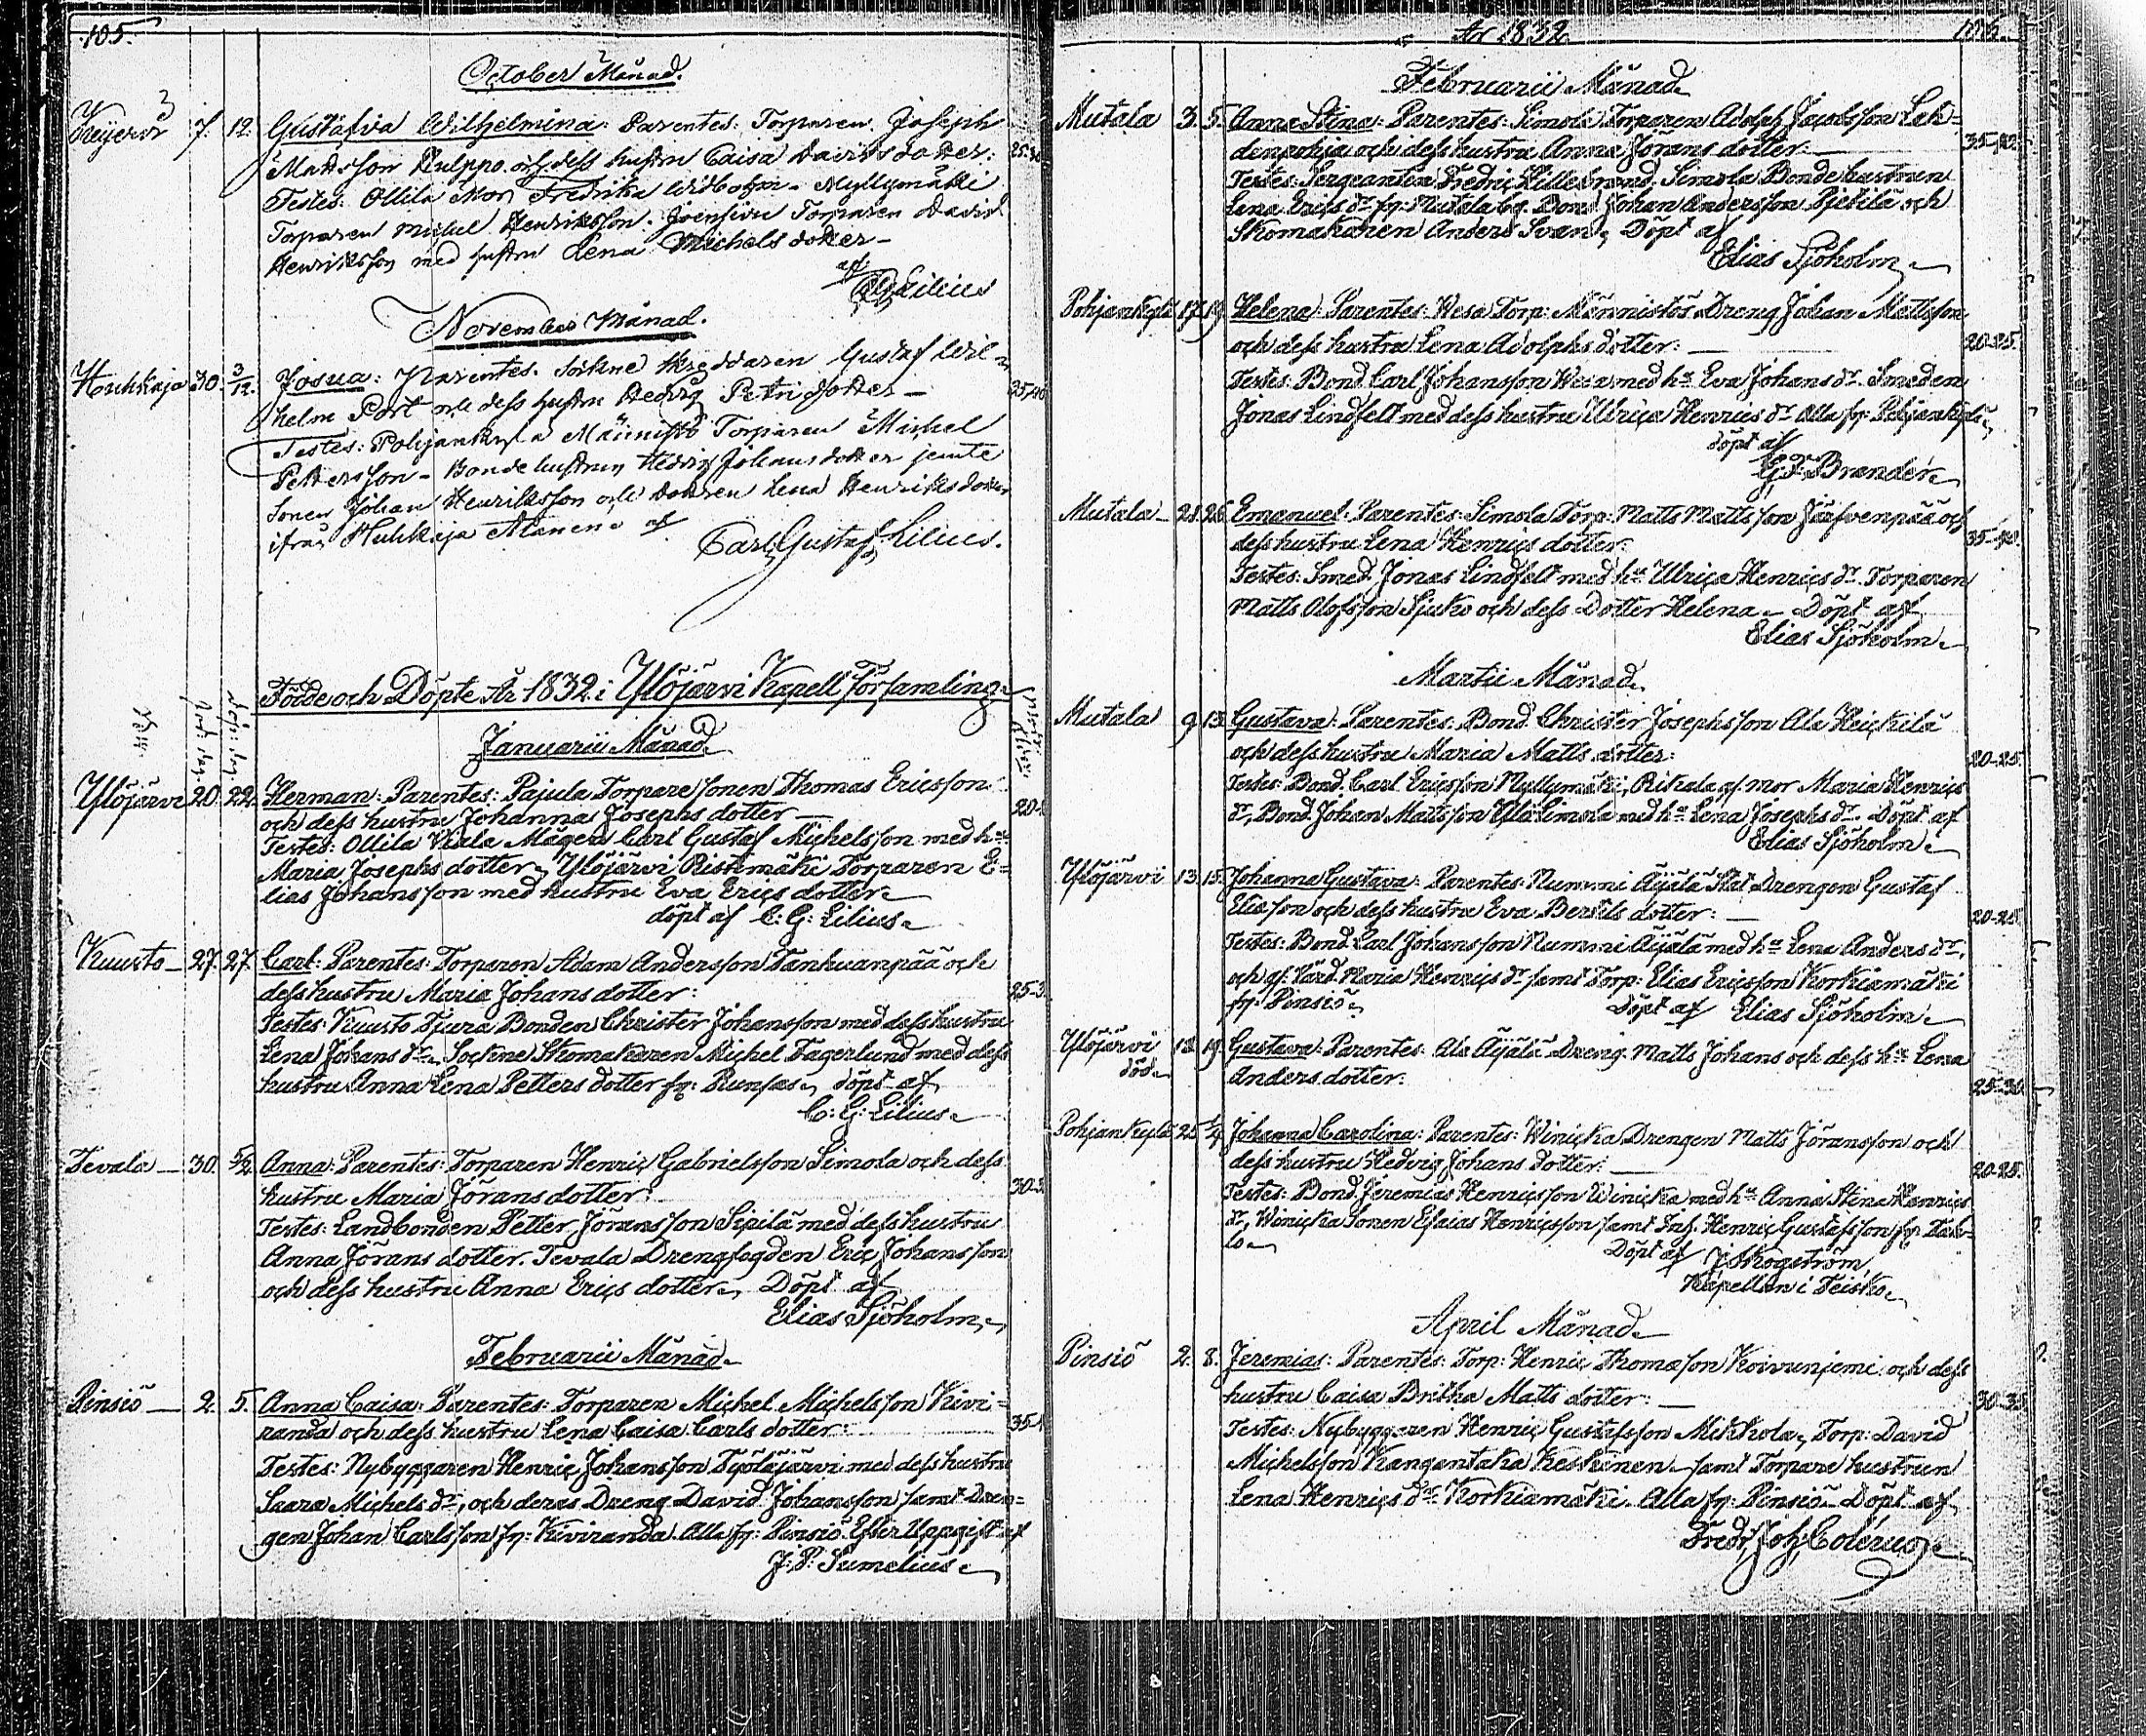 105.
October Månad.
7. 12. Gustafva Wilhelmina: Parentes: Torparen Joseph
Mattsson Kulppo och dess hustru Caisa Davidsdotter:
Testes: Ollila Mor Fredrika Widbohm. Myllymäki
Torparen Michel Henriksson. Joensivu Torparen David
Henriksson med hustru Lena Michelsdotter
af Lilius
November Månad.
Huhkaja 30. 3/12. Josua: Parentes. Sockne Skreddaren Gustaf Wil-
helm Port och dess hustru Hedvig Petri dotter
Testes: Pohjankylä Männistö Torparen Michel
Pettersson - Bonde hustrun Hedvig Johansdotter jemte
Sonen Johan Henriksson och dottren Lena Henriksdotter
ifrån Huhkaja af
Carl Gustaf Lilius.
Födde och Döpte År 1832 i Ylöjärvi Kapell Församling
Januarii Månad
Ylöjärvi 20. 22. Herman: Parentes: Pajula Torpare Sonen Thomas Ericsson
och dess hustru Johanna Josephs dotter
Testes: Ollila Mågen Carl Gustaf Michelsson med hu
Maria Josephs dotter, Ylöjärvi Ristimäki Torparen E-
lias Johansson med hustru Eva Erics dotter
döpt af C: G: Lilius
Kuusto 27. 27. Carl: Parentes: Torparen Adam Andersson Tanhuanpää och
dess hustru Maria Johans dotter: 25-3
Testes: Kuusto Tjura Bonden Christer Johansson med dess hustru
Lena Johans dr. Sockne Skomakaren Michel Fagerlund med dess
hustru Anna Lena Petters dotter fr: Runsas, döpt af
C: G: Lilius
Tevala 30. 5/2. Anna: Parentes: Torparen Henric Gabrielsson Simola och dess
hustru Maria Jörans dotter: 30-3
Testes: Landbonden Petter Jöransson Sipilä med dess hustru
Anna Jörans dotter. Tevala Drengfogden Eric Johansson
och dess hustru Anna Erics dotter, Döpt af
Elias Sjöholm
Februarii Månad
Pinsiö 2. 5. Anna Caisa: Parentes: Torparen Michel Michelsson Kivi-
randa och dess hustru Lena Caisa Carls dotter:
Testes: Nybyggaren Henric Johansson Työläjärvi med dess hustru
Saara Michels dr, och deras Dreng David Johansson samt Dren-
gen Johan Carlsson fr: Kiviranda. Alla fr: Pinsiö. Efter Uppgift af
J: P: Sumelius
År 1832 106.
Februarii Månad
Mutala 3. 5. Anna Stina: Parentes: Simola Torparen Adolph Jacobsson Leh-
denpohja och dess hustru Anna Jörans dotter:
Testes: Sergeanten Fredric Hillebrand, Simola Bonde hustrun
Lena Erics dr fr: Mutala by. Bond. Johan Andersson Pjetilä och
Skomakaren Anders Svan, Döpt af
Elias Sjöholm
Pohjankylä 17. 19. Helena: Parentes: Wesa Torp: Männistös Dreng Johan Mattsson
och dess hustru Lena Adolphs dotter: 20-25.
Testes: Bond. Carl Johansson Wesa med hu Eva Johans dr. Smeden
Jonas Lindfelt med dess hustru Ulrica Henrics dr alla fr: Pohjankylä
döpt af
G. F. Brander
Mutala 21. 26. Emanuel: Parentes: Simola Torp: Matts Mattsson Järfvenpää och
dess hustru Lena Henrics dotter: 35-40.
Testes: Smed. Jonas Lindfelt med hu Ulrica Henrics dr. Torparen
Matts Olofsson Sjuko och dess Dotter Helena. Döpt af
Elias Sjöholm
Martii Månad
Mutala 9. 13. Gustava: Parentes: Bond. Christer Josephsson Ala Heickilä
och dess hustru Maria Matts dotter: 20-25.
Testes: Bond. Carl Ericsson Myllymäki, Rikala gf. mor Maria Henrics
dr, Bond. Johan Mattsson Yla Simola med hu Lena Josephs dr. Döpt af
Elias Sjöholm
Ylöjärvi 13. 15. Johanna Gustava: Parentes: Nummi Äijälä Stat Drengen Gustaf
Eliasson och dess hustru Eva Bertils dotter: 20-25.
Testes: Bond. Carl Johansson Nummi Äijälä med hu Lena Anders dr,
och gf. Värd. Maria Henrics dr samt Torp: Elias Ericsson Korkiamäki
fr: Pinsiö Döpt af Elias Sjöholm
Ylöjärvi 18. 19. Gustava: Parentes: Ala Äijälä Dreng Matts Johans och dess hu Lena
död Anders dotter: 25-30.
Pohjankylä 25. 1/4. Johanna Carolina: Parentes: Winicka Drengen Matts Jöransson och
dess hustru Hedvig Johans dotter: 20-25.
Testes: Bond. Jeremias Henricsson Winicka med hu Anna Stina Henrics
dr, Winicka Sonen Esaias Henricsson samt Inh. Henric Gustafsson fr:
Döpt af J Skogström
Kapellan i Teisko
April Månad
Pinsiö 2. 8. Jeremias: Parentes: Torp: Henric Thomasson Koivuniemi och dess
hustru Caisa Britha Matts dotter: 30-35
Testes: Nybyggaren Henric Gustafsson Mikkola, Torp: David
Michelsson Kangentaka Keskinen samt Torpare hustrun
Lena Henrics dr Korkiamäki. Alla fr: Pinsiö Döpt af
Fredr. Joh. Colérus